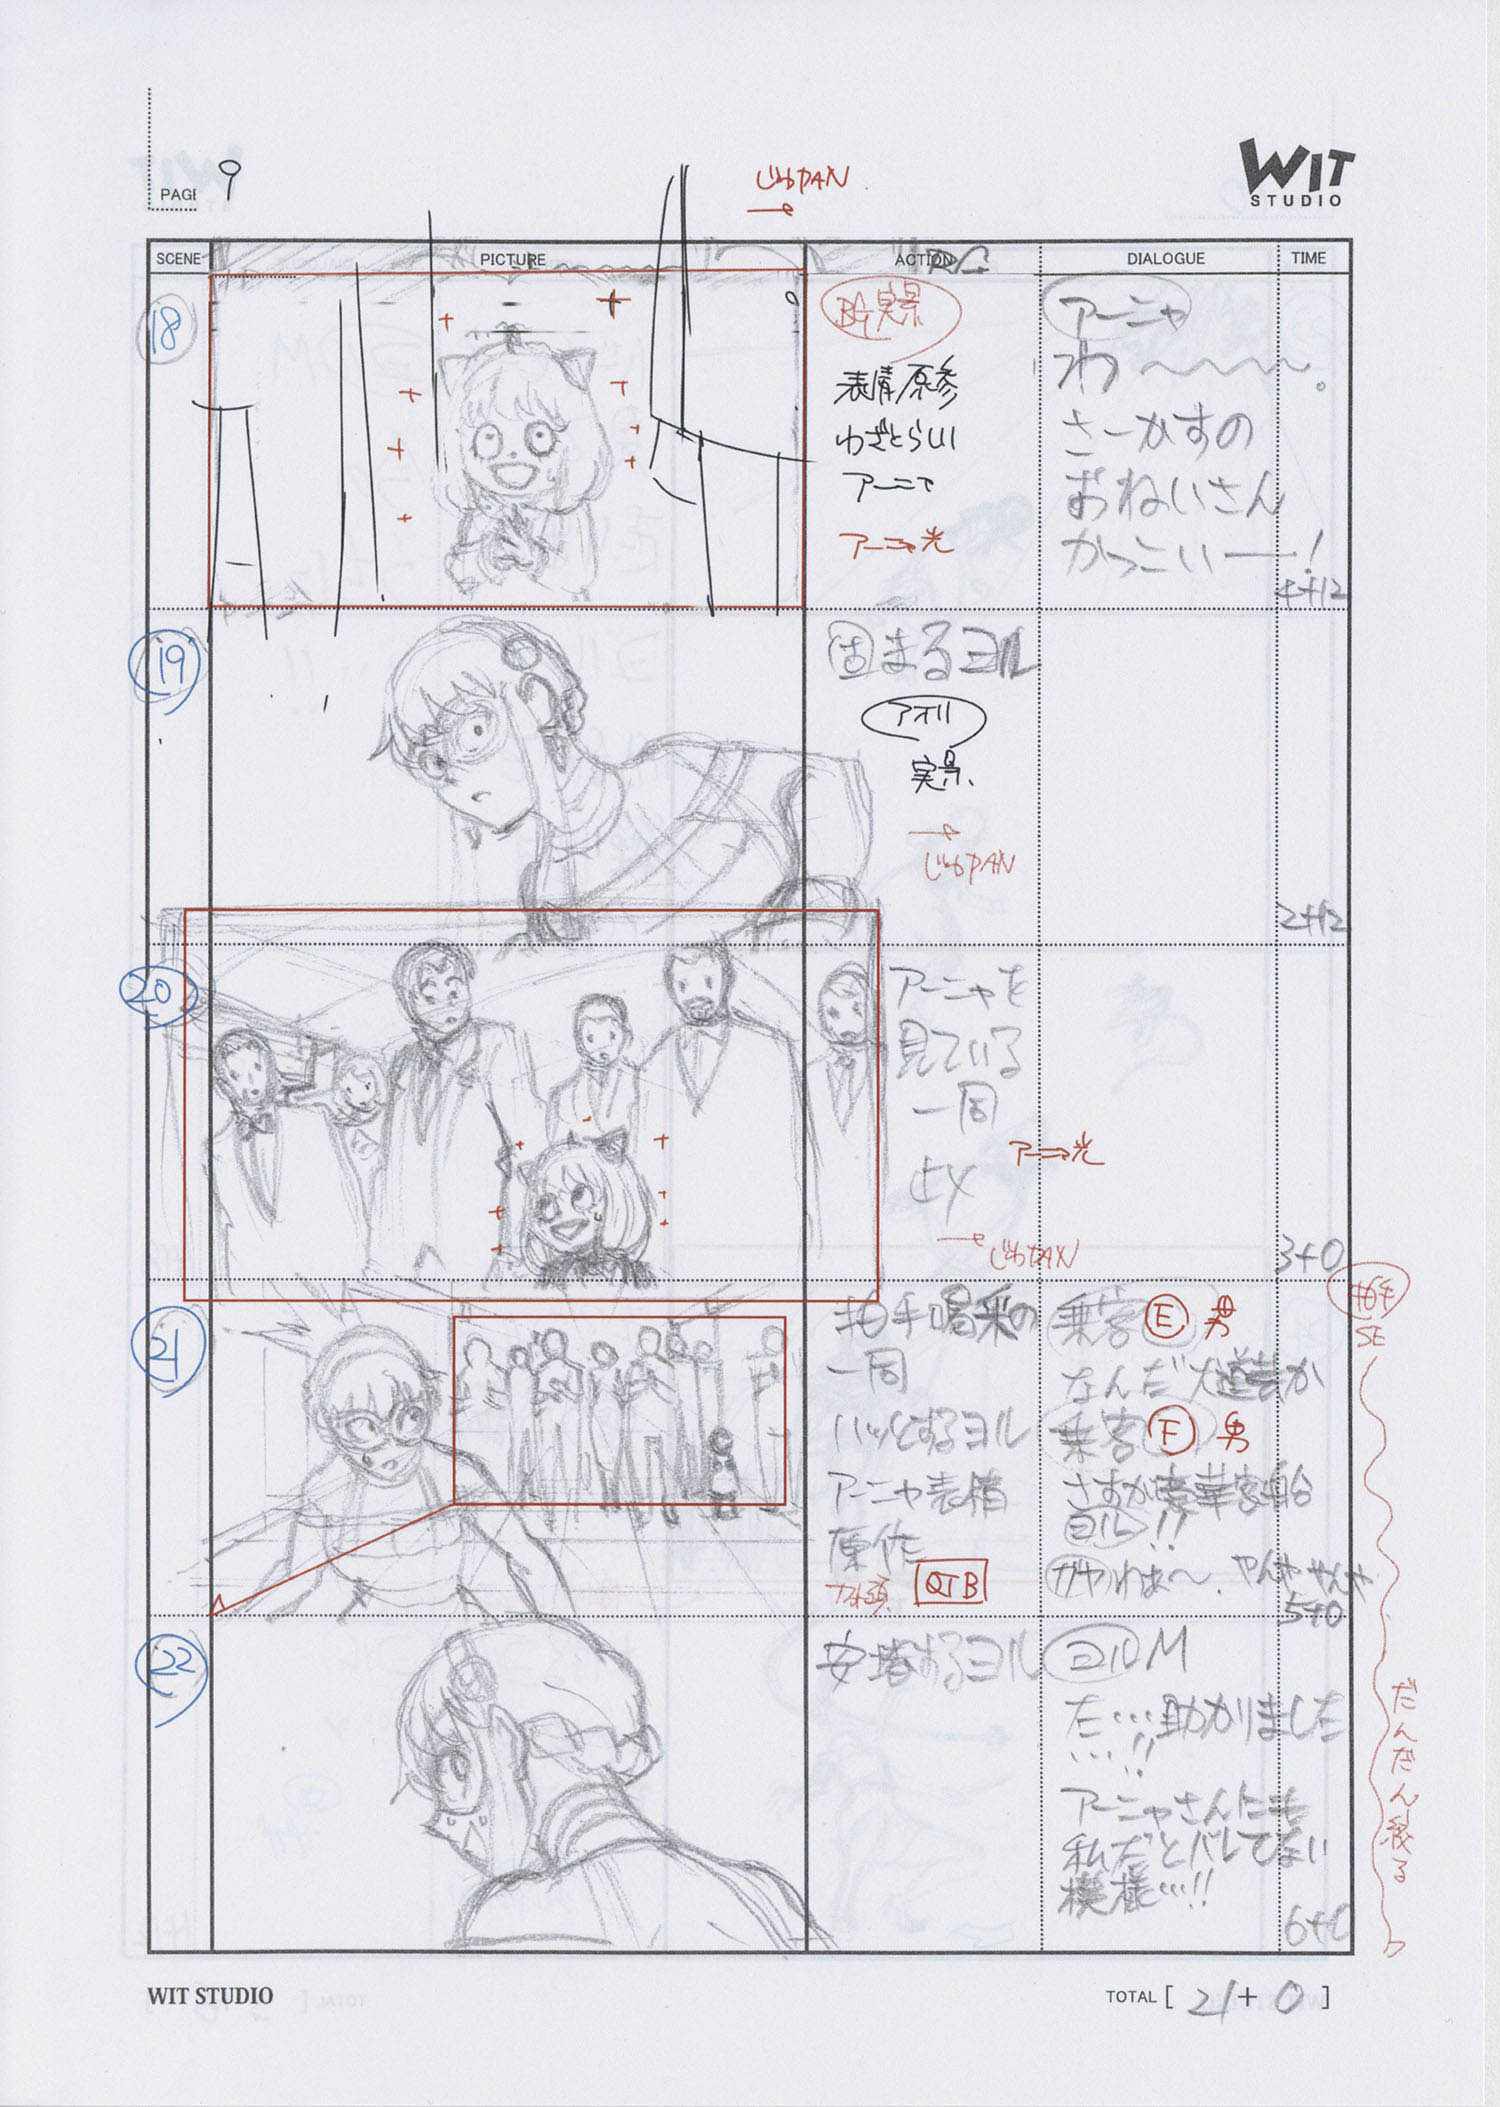 PAGE 9
じわPAN
WIT
STUDIO
SCENE
PICTURE
ACTION
DIALOGUE
TIME
18
BG実景
表情原参
わざとらしい
アーニャ
アーニャ光
アーニャ
わ〜〜〜〜。
さーかすの
おねいさん
かっこいーー!
4+12
19
固まるヨル
アオリ
実景
じわPAN
2+12
20
アーニャを
見ている
一同
アーニャ光
じわPAN
3+0
21
拍手喝采の
一同
ハッとするヨル
アーニャ表情
原作
QTB
乗客 E 男
なんだ大道芸か
乗客 F 男
さすが豪華客船
ヨル!!
ガヤ わぁ〜、やんややんや
5+0
拍手
SE
だんだん絞る
22
安堵するヨル
ヨルM
た…助かりました
…!!
アーニャさんにも
私だとバレてない
模様…!!
6+0
WIT STUDIO
TOTAL [ 21+0 ]